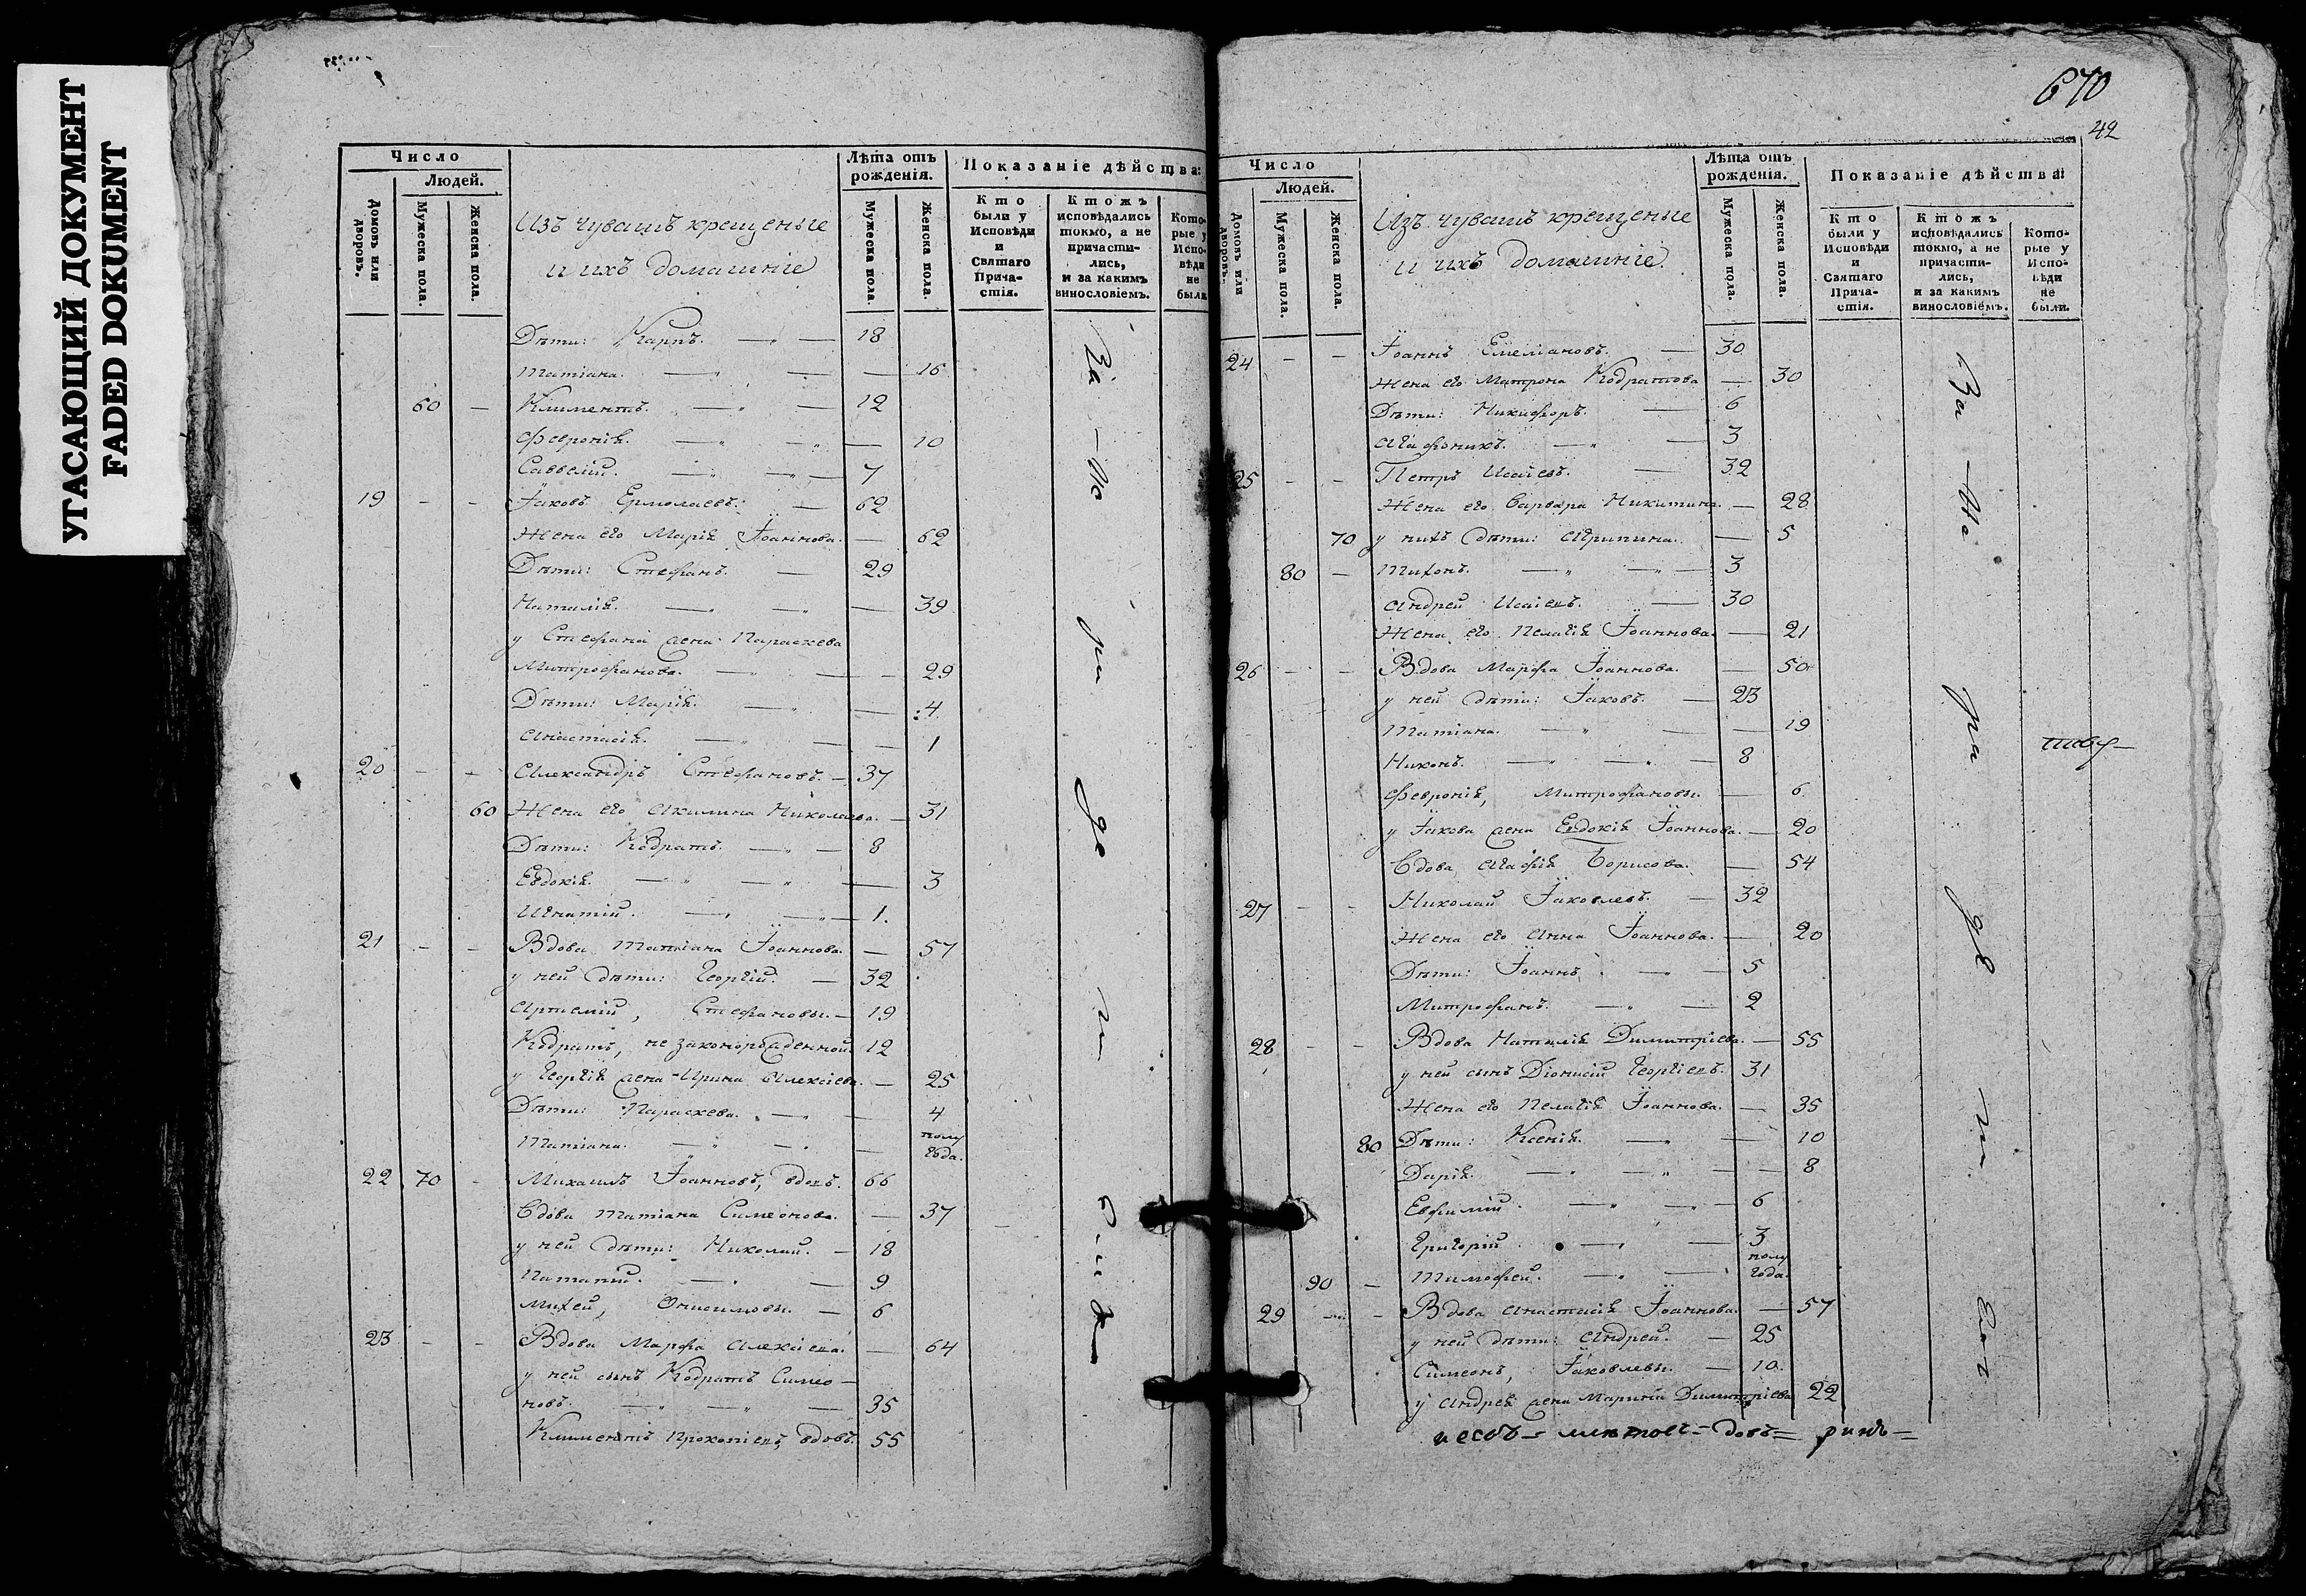 УГАСАЮЩИЙ ДОКУМЕНТ
FADED DOKUMENT
Число
Людей.
Домовъ или дворовъ.
Мужеска пола.
Женска пола.
Изъ чувашъ крещеные
и ихъ домашніе
Лѣта отъ рожденія.
Мужеска пола.
Женска пола.
Показаніе дѣйства:
Кто были у Исповѣди и Святаго Причастія.
Ктожъ исповѣдались токмо, а не причастились, и за какимъ винословіемъ.
Которые у Исповѣди не были
Дѣти: Карпъ. 18
Татіана. 16
60 Климентъ. 12
Февронія. 10
Савелій. 7
19 Іаковъ Ермолаевъ. 62
Жена его Марія Іоаннова. 62
Дѣти: Стефанъ. 29
Наталія. 39
у Стефана жена Параскева
Митрофанова. 29
Дѣти: Марія. 4
Анастасія. 1
20 Александръ Стефановъ. 37
60 Жена его Акилина Николаева. 31
Дѣти: Кодратъ. 8
Евдокія. 3
Игнатій. 1.
21 Вдова Татіана Іоаннова. 57
у ней дѣти: Георгій. 32
Артемій, Стефановы. 19
Кодратъ, незаконорожденной 12
у Георгія жена Ирина Алексіева. 25
Дѣти: Параскева. 4
Татіана. полу года.
22 70 Михаилъ Іоанновъ, вдовъ. 66
Вдова Татіана Симеонова. 37
у ней дѣти: Николай. 18
Патапій. 9
Михей, Онисимовы. 6
23 Вдова Марфа Алексіева. 64
у ней сынъ Кодратъ Симео-
новъ. 35
Климентъ Прокопіевъ вдовъ. 55
За не ра де ні
670
42
Число
Людей.
Домовъ или дворовъ.
Мужеска пола.
Женска пола.
Изъ чувашъ крещеные
и ихъ домашніе.
Лѣта отъ рожденія.
Мужеска пола.
Женска пола.
Показаніе дѣйства:
Кто были у Исповѣди и Святаго Причастія.
Ктожъ исповѣдались токмо, а не причастились, и за какимъ винословіемъ.
Которые у Исповѣди не были.
24 Іоаннъ Емеліановъ. 30
Жена его Матрона Кодратова 30
Дѣти: Никифоръ. 6
Агафоникъ. 3
25 Петръ Исаіевъ. 32
Жена его Варвара Никитина. 28
70 у нихъ дѣти: Агрипина. 5
80 Тихонъ. 3
Андрей Исаіевъ. 30
Жена его Пелагія Іоаннова. 21
26 Вдова Марфа Іоаннова. 50
у ней дѣти: Іаковъ. 23
Татіана. 19
Никонъ. 8
Февронія, Митрофановы. 6
у Іакова жена Евдокія Іоаннова. 20
Вдова Агафія Борисова. 54
27 Николай Іаковлевъ. 32
Жена его Анна Іоаннова. 20
Дѣти: Іоаннъ. 5
Митрофанъ. 2
28 Вдова Наталія Димитріева. 55
у ней сынъ Діонисій Георгіевъ. 31
Жена его Пелагія Іоаннова. 35
80 Дѣти: Ксенія. 10
Дарія. 8
Евфимій. 6
Григорій. 3
90 Тимофей. полу года.
29 Вдова Анастасія Іоаннова. 57
у ней дѣти: Андрей. 25
Симеонъ, Іаковлевы. 10.
у Андрея жена Марина Димитріева 22
За не ра де ні